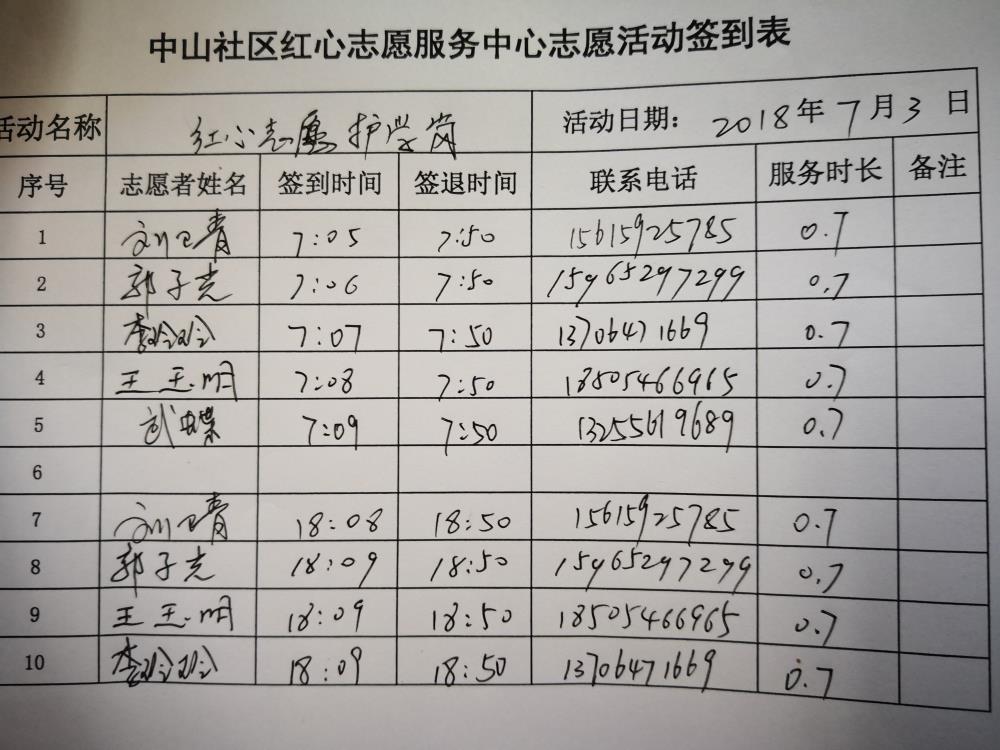 中山社区红心志愿服务中心志愿活动签到表
活动名称 红心志愿护学岗 活动日期： 2018年7月3日
序号 志愿者姓名 签到时间 签退时间 联系电话 服务时长 备注
1 刘卫青 7:05 7:50 15615925785 0.7
2 郭子光 7:06 7:50 15965297299 0.7
3 7:07 7:50 13706471669 0.7
4 7:08 7:50 18505466965 0.7
5 武蝶 7:09 7:50 13255619689 0.7
6
7 刘卫青 18:08 18:50 15615925785 0.7
8 郭子光 18:09 18:50 15965297299 0.7
9 18:09 18:50 18505466965 0.7
10 18:09 18:50 13706471669 0.7